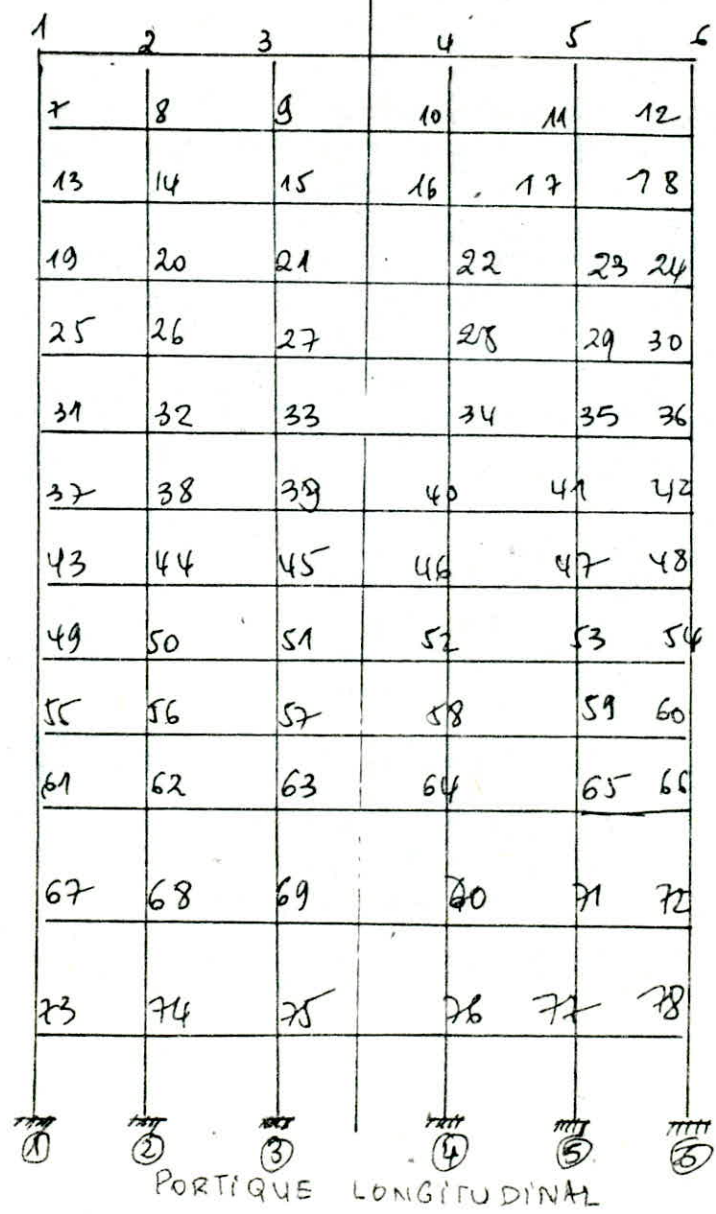 1 2 3 4 5 6
7 8 9 10 11 12
13 14 15 16 17 18
19 20 21 22 23 24
25 26 27 28 29 30
31 32 33 34 35 36
37 38 39 40 41 42
43 44 45 46 47 48
49 50 51 52 53 54
55 56 57 58 59 60
61 62 63 64 65 66
67 68 69 70 71 72
73 74 75 76 77 78
1 2 3 4 5 6
PORTIQUE LONGITUDINAL